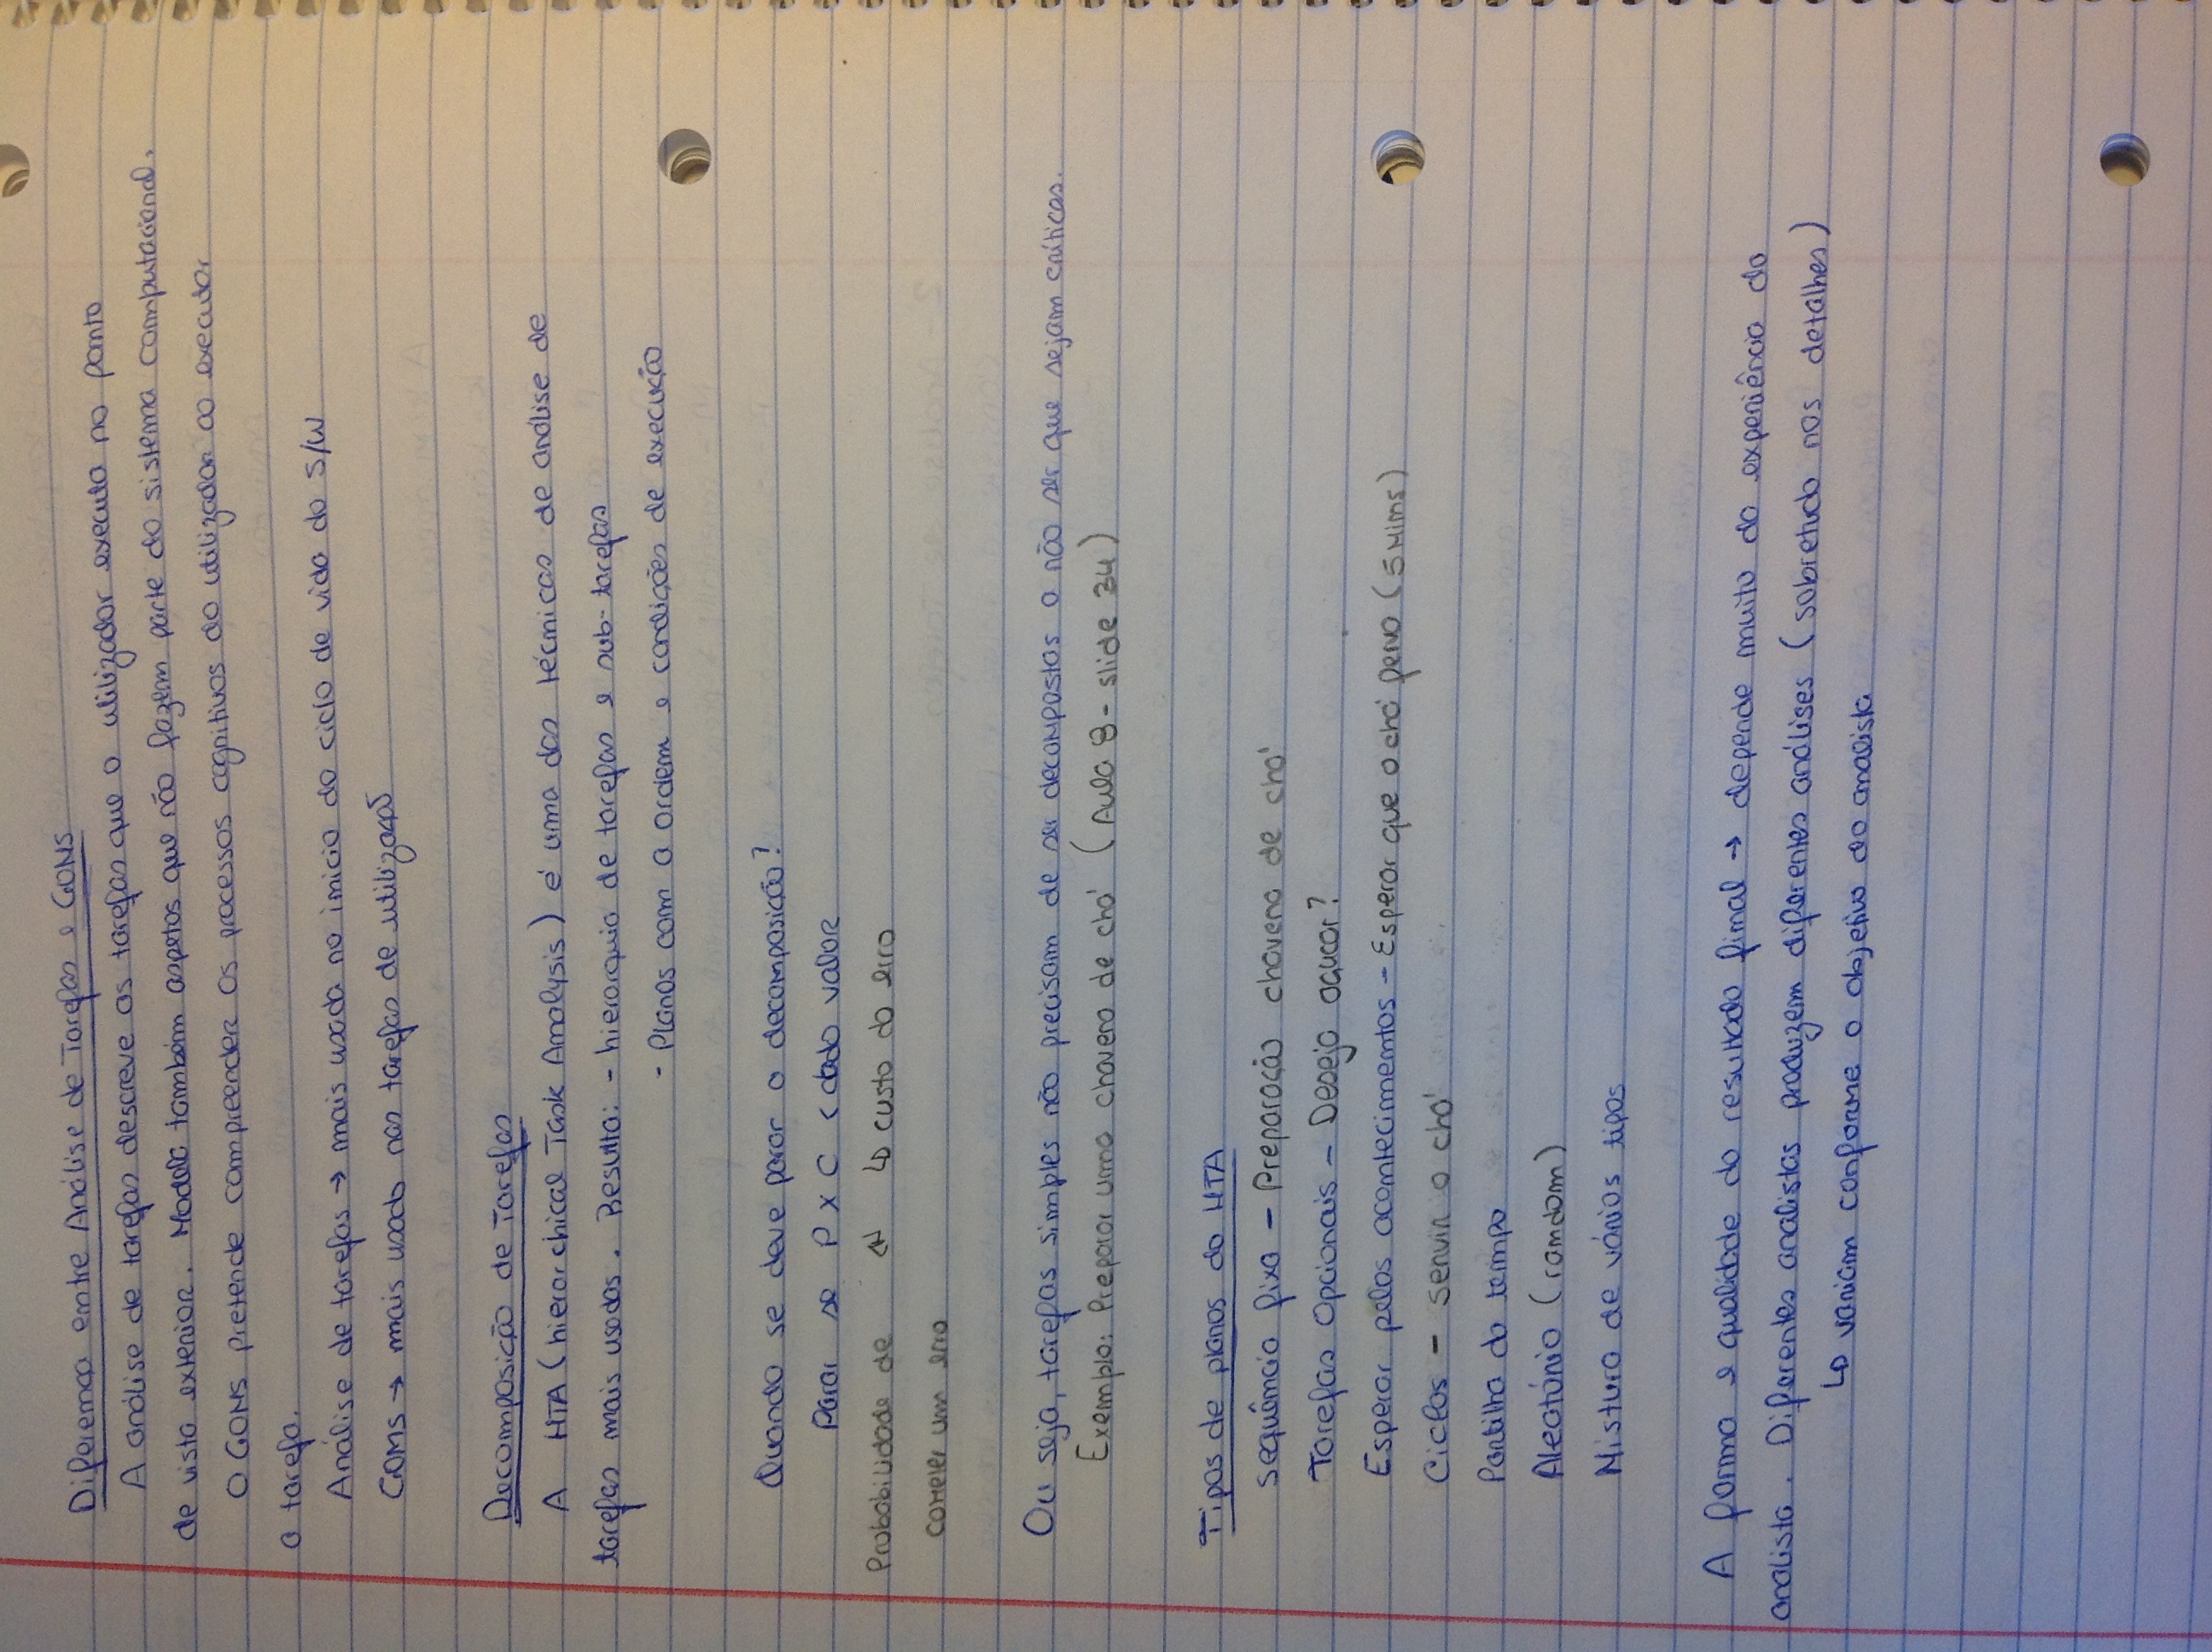 Diferença entre Análise de Tarefas e GOMS
A análise de tarefas descreve as tarefas que o utilizador executa no ponto
de vista exterior. Modela também aspetos que não fazem parte do sistema computacional.
O GOMS pretende compreender os processos cognitivos do utilizador ao executar
a tarefa.
Análise de tarefas → mais usada no inicio do ciclo de vida do S/W
GOMS → mais usado nas tarefas de utilização
Decomposição de Tarefas
A HTA (hierarchical Task Analysis) é uma das técnicas de análise de
tarefas mais usadas. Resulta: - hierarquia de tarefas e sub-tarefas
- Planos com a ordem e condições de execução
Quando se deve parar a decomposição?
Parar se P x C < dado valor
Probabilidade de ↲ ↳ custo do erro
cometer um erro
Ou seja, tarefas simples não precisam de ser decompostas a não ser que sejam críticas.
Exemplo: Preparar uma chavena de chá (Aula 8 - slide 34)
Tipos de planos do HTA
Sequência fixa - Preparação chavena de chá
Tarefas Opcionais - Deseja açucar?
Esperar pelos acontecimentos - Esperar que o chá ferva (5 mins)
Ciclos - servir o chá
Partilha do tempo
Aleatório (random)
Mistura de vários tipos
A forma e qualidade do resultado final → depende muito da experiência do
analista. Diferentes analistas produzem diferentes análises (sobretudo nos detalhes)
↳ variam conforme o objetivo do analista